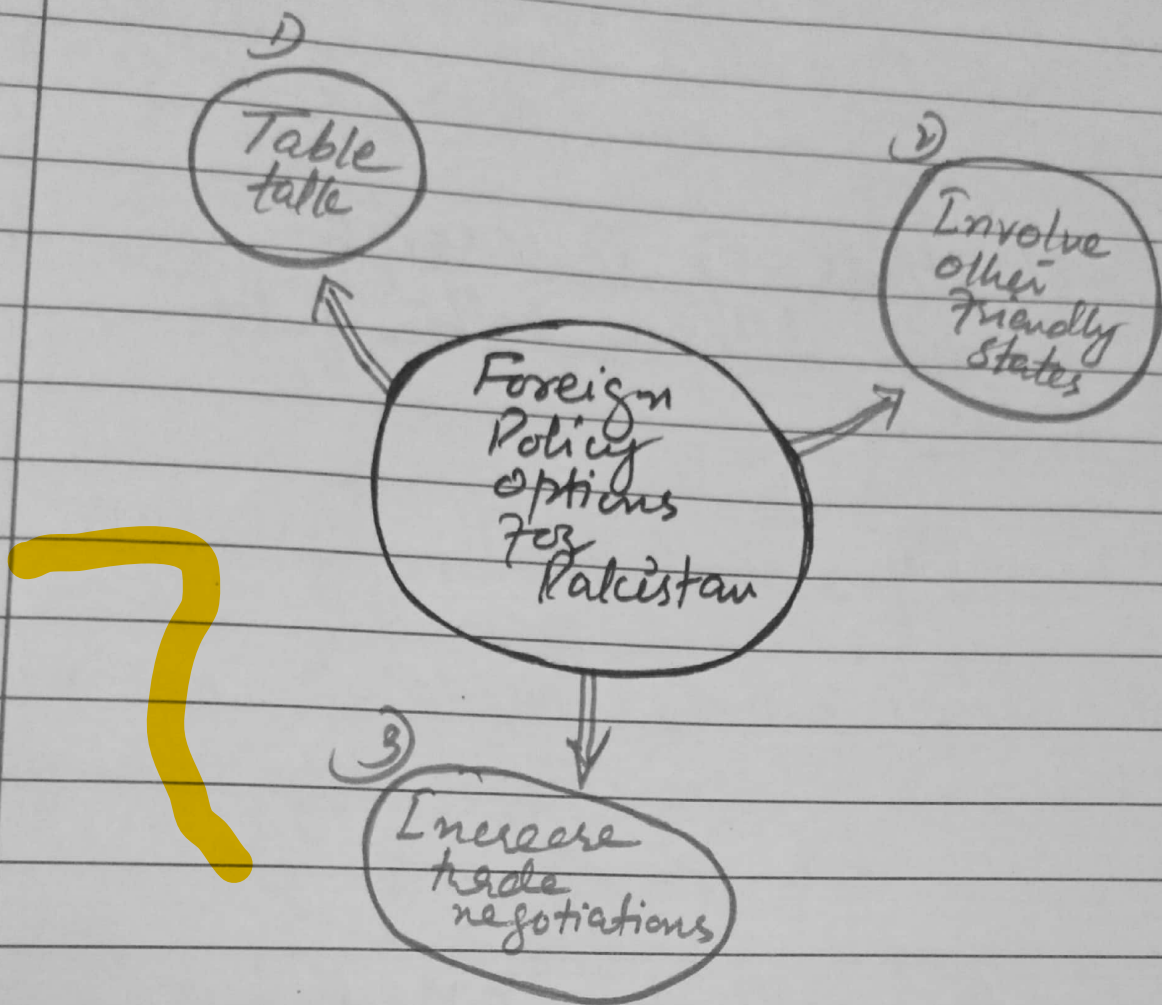 1)
Table
talk
2)
Involve
other
Friendly
states
Foreign
Policy
options
For
Pakistan
3)
Increase
trade
negotiations